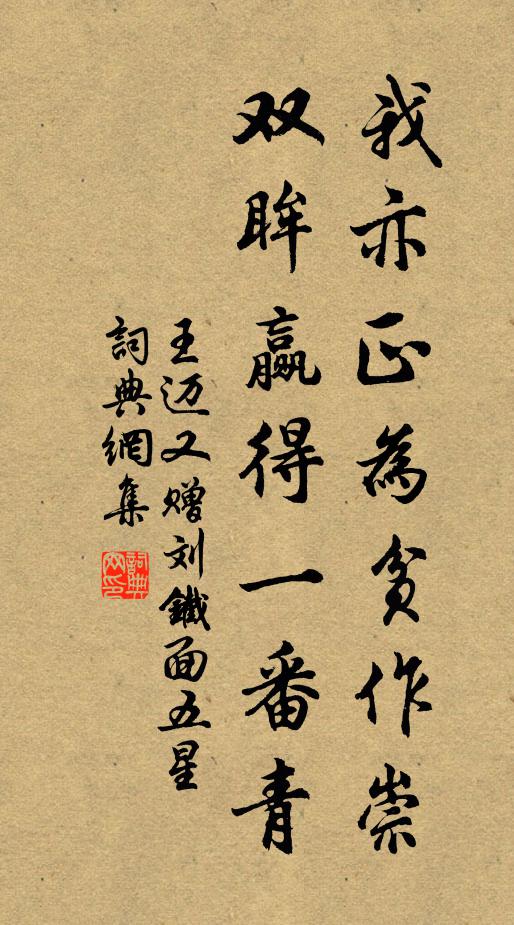 我亦正為貧作崇
双眸赢得一番青
王迈又赠刘鐵面五星
詞典網集
詞典
网印